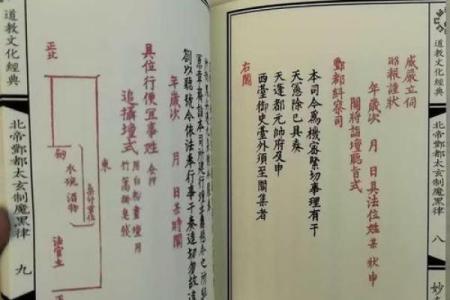 道教文化經典
北帝酆都太玄制魔黑律
八
威嚴立伺
昭報謹狀
年歲次 月 日具法位姓某狀申
關將詣壇聽旨式
酆都糾察司
本司今為機密緊切事理有干
天憲除已具奏
天蓬都元帥府及申
西臺御史臺外須至關集者
右關
年歲次 月 日某時關
具位行便宜事姓
追攝壇式
用白粉畫壇用
竹篙懸皂旛
正北
東
劍
水碗 酒物
法官立
正
道教文化經典
北帝酆都太玄制魔黑律
九